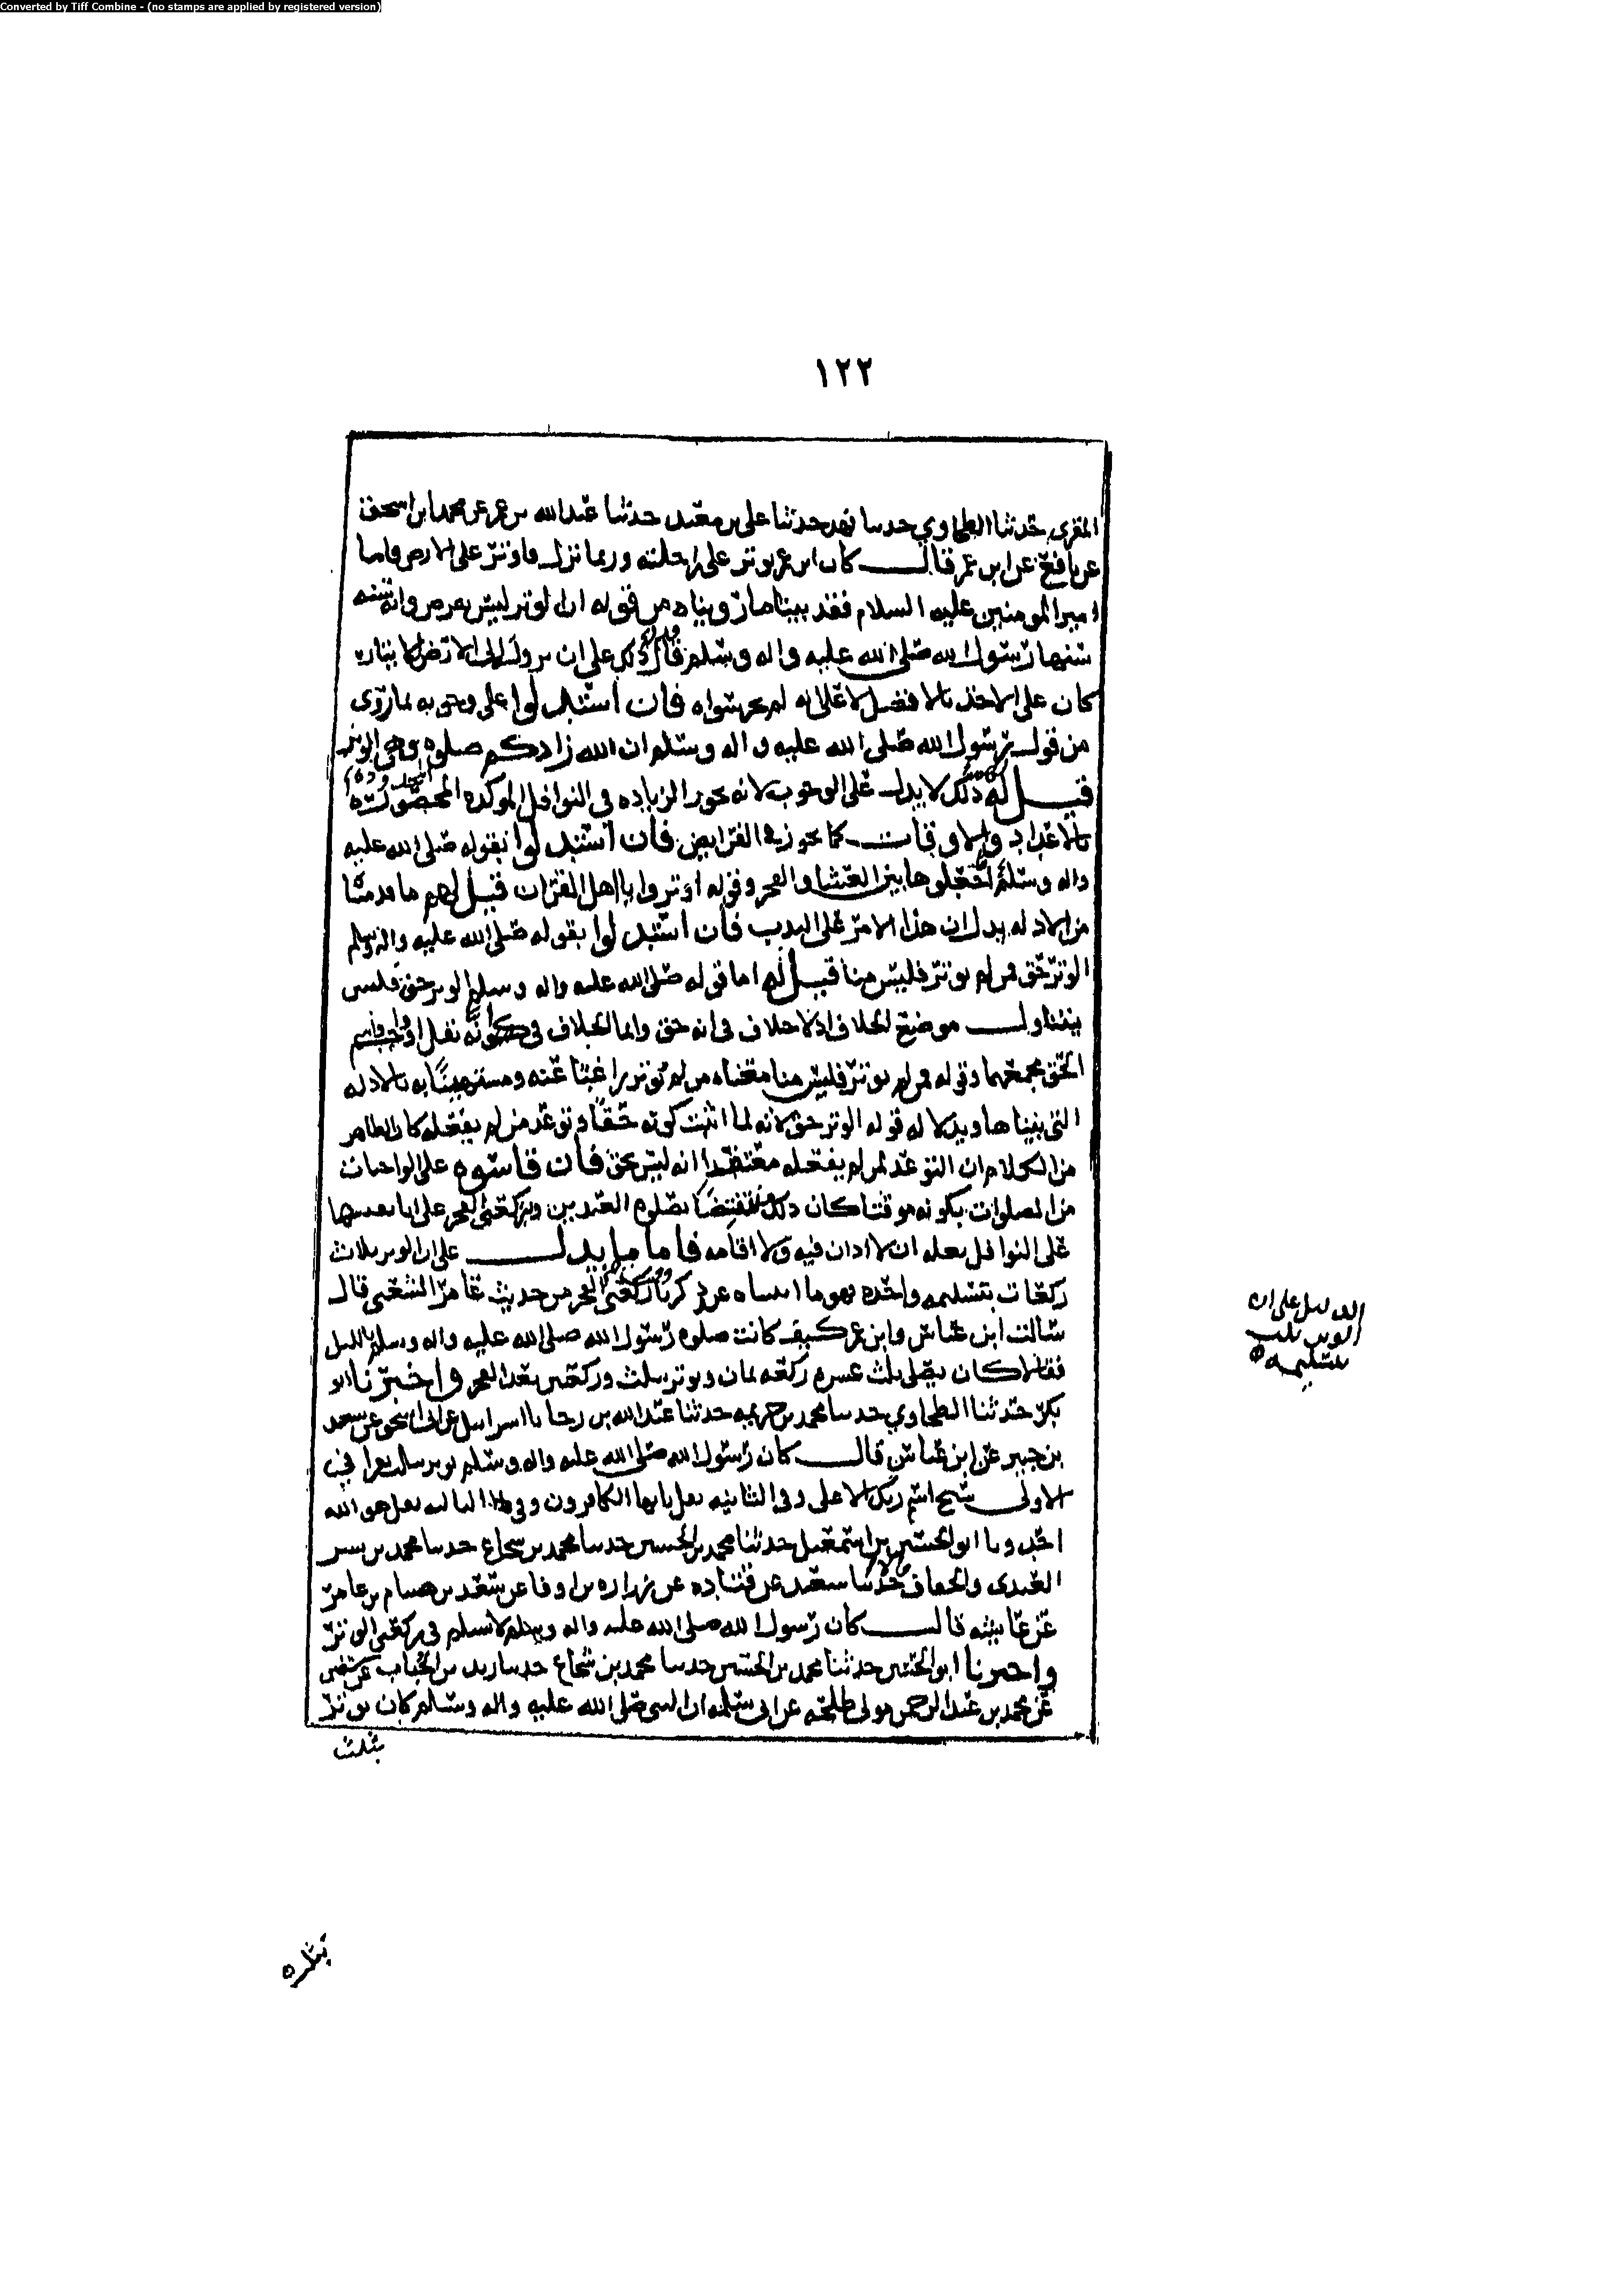 Converted by Tiff Combine - (no stamps are applied by registered version)
١٢٢
المقري حدثنا الطحاوي حدثنا فهد حدثنا علي بن معبد حدثنا عبد الله بن عمر عن محمد ابن اسحق
عن نافع عن ابن عمر قال كان ابن عمر يوتر على راحلته وربما نزل فاوتر على الارض فاما
امير المومنين عليه السلام فقد بينا ما رويناه من قوله ان الوتر ليس بفرض وانه سنه
سنها رسول الله صلى الله عليه واله وسلم ذلك على ان نزوله الى الارض
كان على الاخذ بالافضل لا على انه لم يجز سواه فان استدلوا على وجوبه بما روى
من قول رسول الله صلى الله عليه واله وسلم ان الله زادكم صلوه وهي الوتر
قيل له ذلك لا يدل على الوجوب لانه يجوز الزياده في النوافل الموكده المحصوره
بالاعداد والاوقات كما يجوز في الفرايض فان استدلوا بقوله صلى الله عليه
واله وسلم اجعلوها بين العشا والفجر وقوله اوتروا يا اهل القران قيل لهم ما قدمنا
من الادله يدل ان هذا الامر على الندب فان استدلوا بقوله صلى الله عليه واله وسلم
الوتر حق فمن لم يوتر فليس منا قيل لهم اما قوله صلى الله عليه واله وسلم الوتر حق فليس
يتناول موضع الخلاف اذ لا خلاف في انه حق وانما الخلاف في كونه نفلا او واجبا واسم
الحق يجمعهما وقوله فمن لم يوتر فليس منا معناه من لم يوتر راغبا عنه ومستهينا به بالادله
التي بيناها وبدلاله قوله الوتر حق لانه لما اثبت كونه حقا وتوعد من لم يفعله كان الظاهر
من الكلام ان التوعد لمن لم يفعله معتقدا انه ليس بحق فان قاسوه على الواجبات
من الصلوات بكونه موقتا كان ذلك منتقضا بصلوه العيدين وبركعتي الفجر على انا نقيسها
على النوافل بعله ان لا اذان فيه ولا اقامه فاما ما يدل على ان الوتر بثلاث
ركعات بتسليمه واحده فهو ما ركعتي الفجر من حديث عامر الشعبي قال
سالت ابن عباس وابن عمر كيف كانت صلوه رسول الله صلى الله عليه واله وسلم بالليل
فقالا كان يصلي ثلث عشره ركعه ثمان ويوتر بثلث وركعتين بعد الفجر واخبرنا ابو
بكر حدثنا الطحاوي حدثنا محمد بن خزيمه حدثنا عبد الله بن رجا نا اسرائيل عن ابي اسحق عن سعيد
بن جبير عن ابن عباس قال كان رسول الله صلى الله عليه واله وسلم يوتر بثلث يقرا في
الاولى سبح اسم ربك الاعلى وفي الثانيه بقل يا ايها الكافرون وفي الثالثه بقل هو الله
احد ونا ابو الحسين بن اسمعيل حدثنا محمد بن الحسين حدثنا محمد بن شجاع حدثنا محمد بن بشر
العبدي والخفاف حدثنا سعيد عن قتاده عن زراره بن اوفا عن سعد بن هشام بن عامر
عن عايشه قالت كان رسول الله صلى الله عليه واله وسلم لا يسلم في ركعتي الوتر
واخبرنا ابو الحسين حدثنا محمد بن الحسين حدثنا محمد بن شجاع حدثنا زيد بن الحباب عن
عن محمد بن عبد الرحمن مولى طلحه عن ابي سلمه ان النبي صلى الله عليه واله وسلم كان يوتر
بثلث
الدليل على ان
الوتر بثلث
بتسليمه